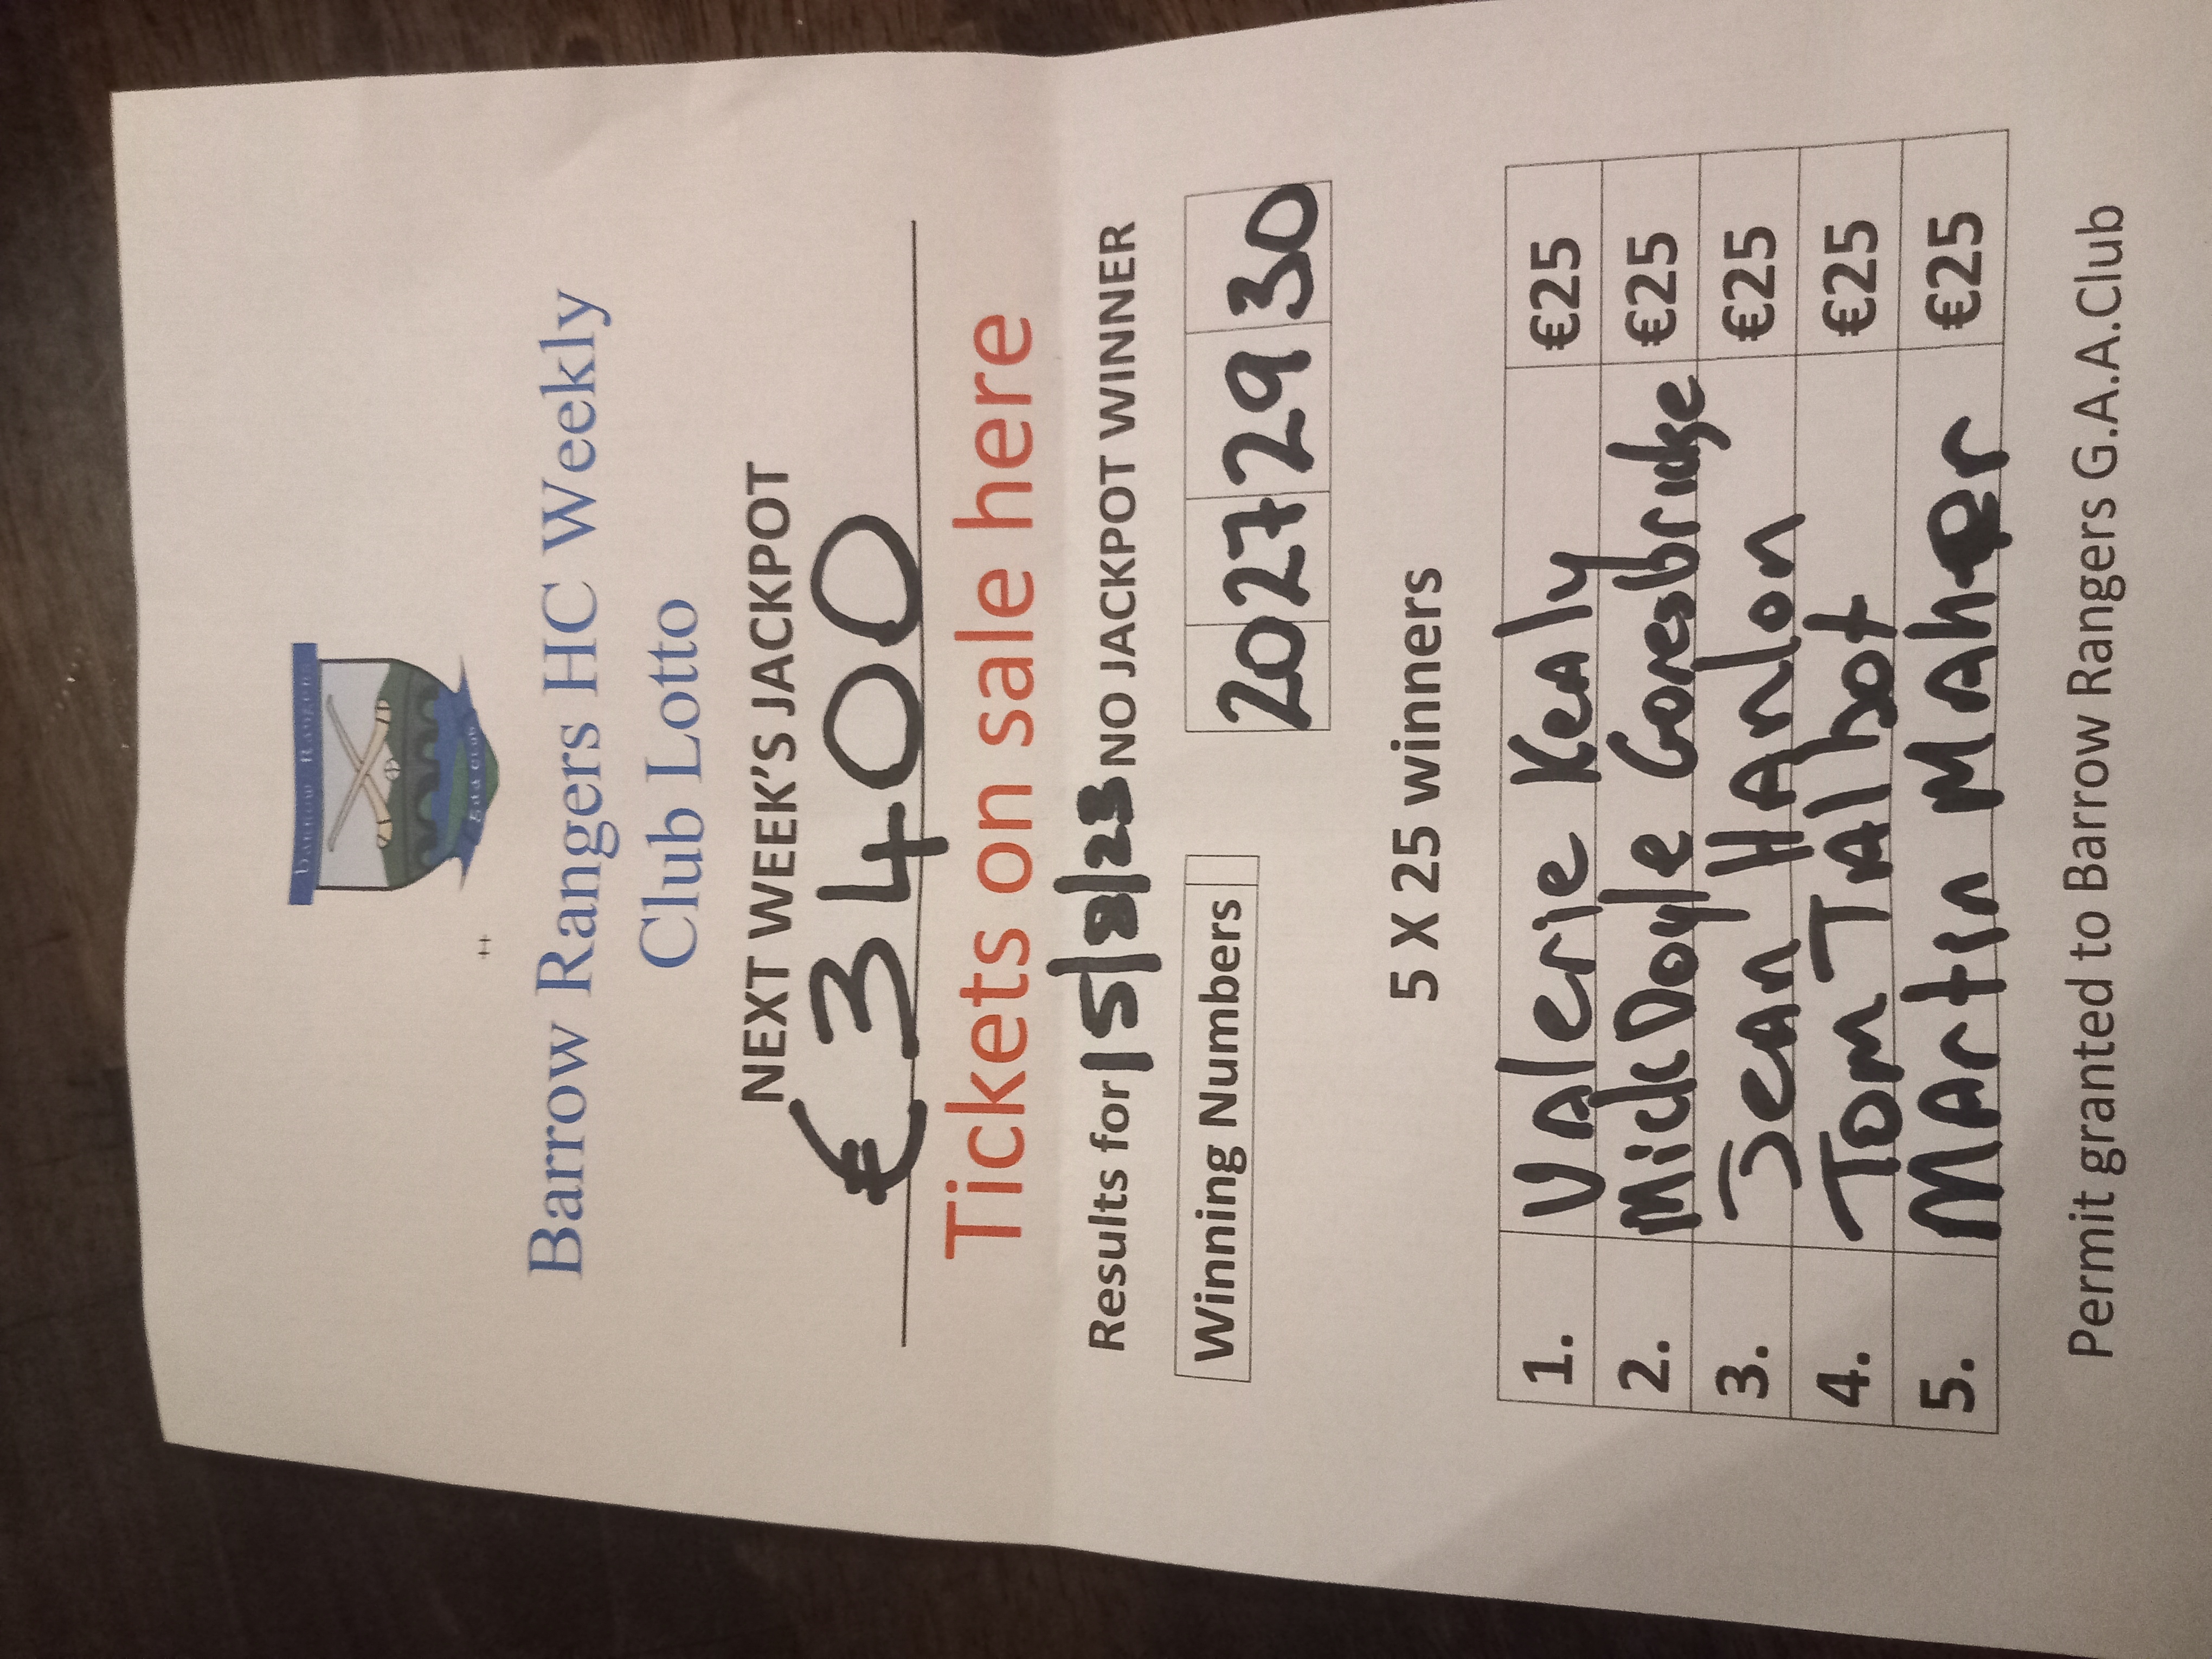 Barrow Rangers
GAA CLUB
Barrow Rangers HC Weekly
Club Lotto
NEXT WEEK'S JACKPOT
€3400
Tickets on sale here
Results for 15/8/23 NO JACKPOT WINNER
Winning Numbers 20 27 29 30
5 X 25 winners
1. Valerie Kealy €25
2. Mick Doyle Goresbridge €25
3. Jean Hanlon €25
4. Tom Talbot €25
5. Martin Maher €25
Permit granted to Barrow Rangers G.A.A.Club